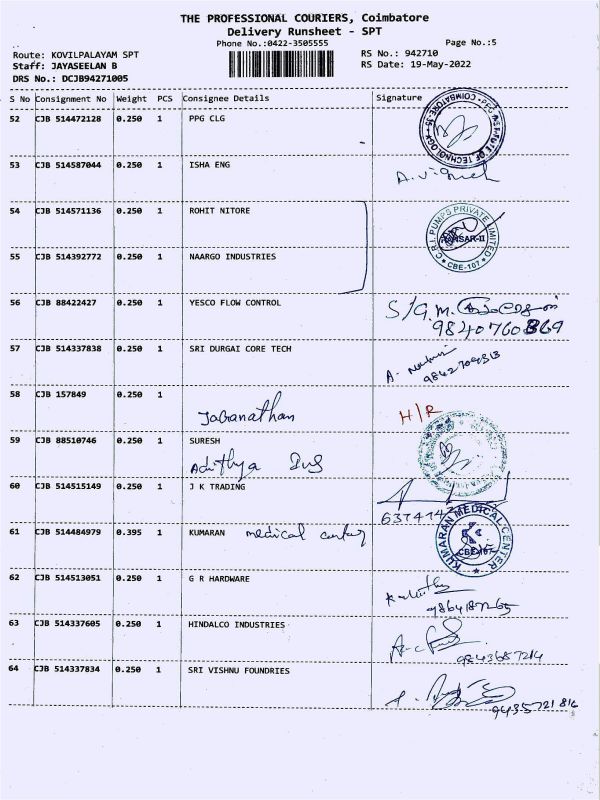 THE PROFESSIONAL COURIERS, Coimbatore
Delivery Runsheet - SPT
Phone No.:0422-3505555 Page No.:5
Route: KOVILPALAYAM SPT RS No.: 942710
Staff: JAYASEELAN B RS Date: 19-May-2022
DRS No.: DCJB94271005
S No Consignment No Weight PCS Consignee Details Signature
52 CJB 514472128 0.250 1 PPG CLG
53 CJB 514587044 0.250 1 ISHA ENG
54 CJB 514571136 0.250 1 ROHIT NITORE
C.R.I. PUMPS PRIVATE LIMITED
CBE-107
55 CJB 514392772 0.250 1 NAARGO INDUSTRIES
56 CJB 88422427 0.250 1 YESCO FLOW CONTROL S/G.M.
9840760869
57 CJB 514337838 0.250 1 SRI DURGAI CORE TECH
58 CJB 157849 0.250 1
Jabanathan H/R
59 CJB 88510746 0.250 1 SURESH
Adithya
60 CJB 514515149 0.250 1 J K TRADING
61 CJB 514484979 0.395 1 KUMARAN medical
KUMARAN MEDICAL CENTER
CBE-107
62 CJB 514513051 0.250 1 G R HARDWARE
63 CJB 514337605 0.250 1 HINDALCO INDUSTRIES
9843687214
64 CJB 514337834 0.250 1 SRI VISHNU FOUNDRIES